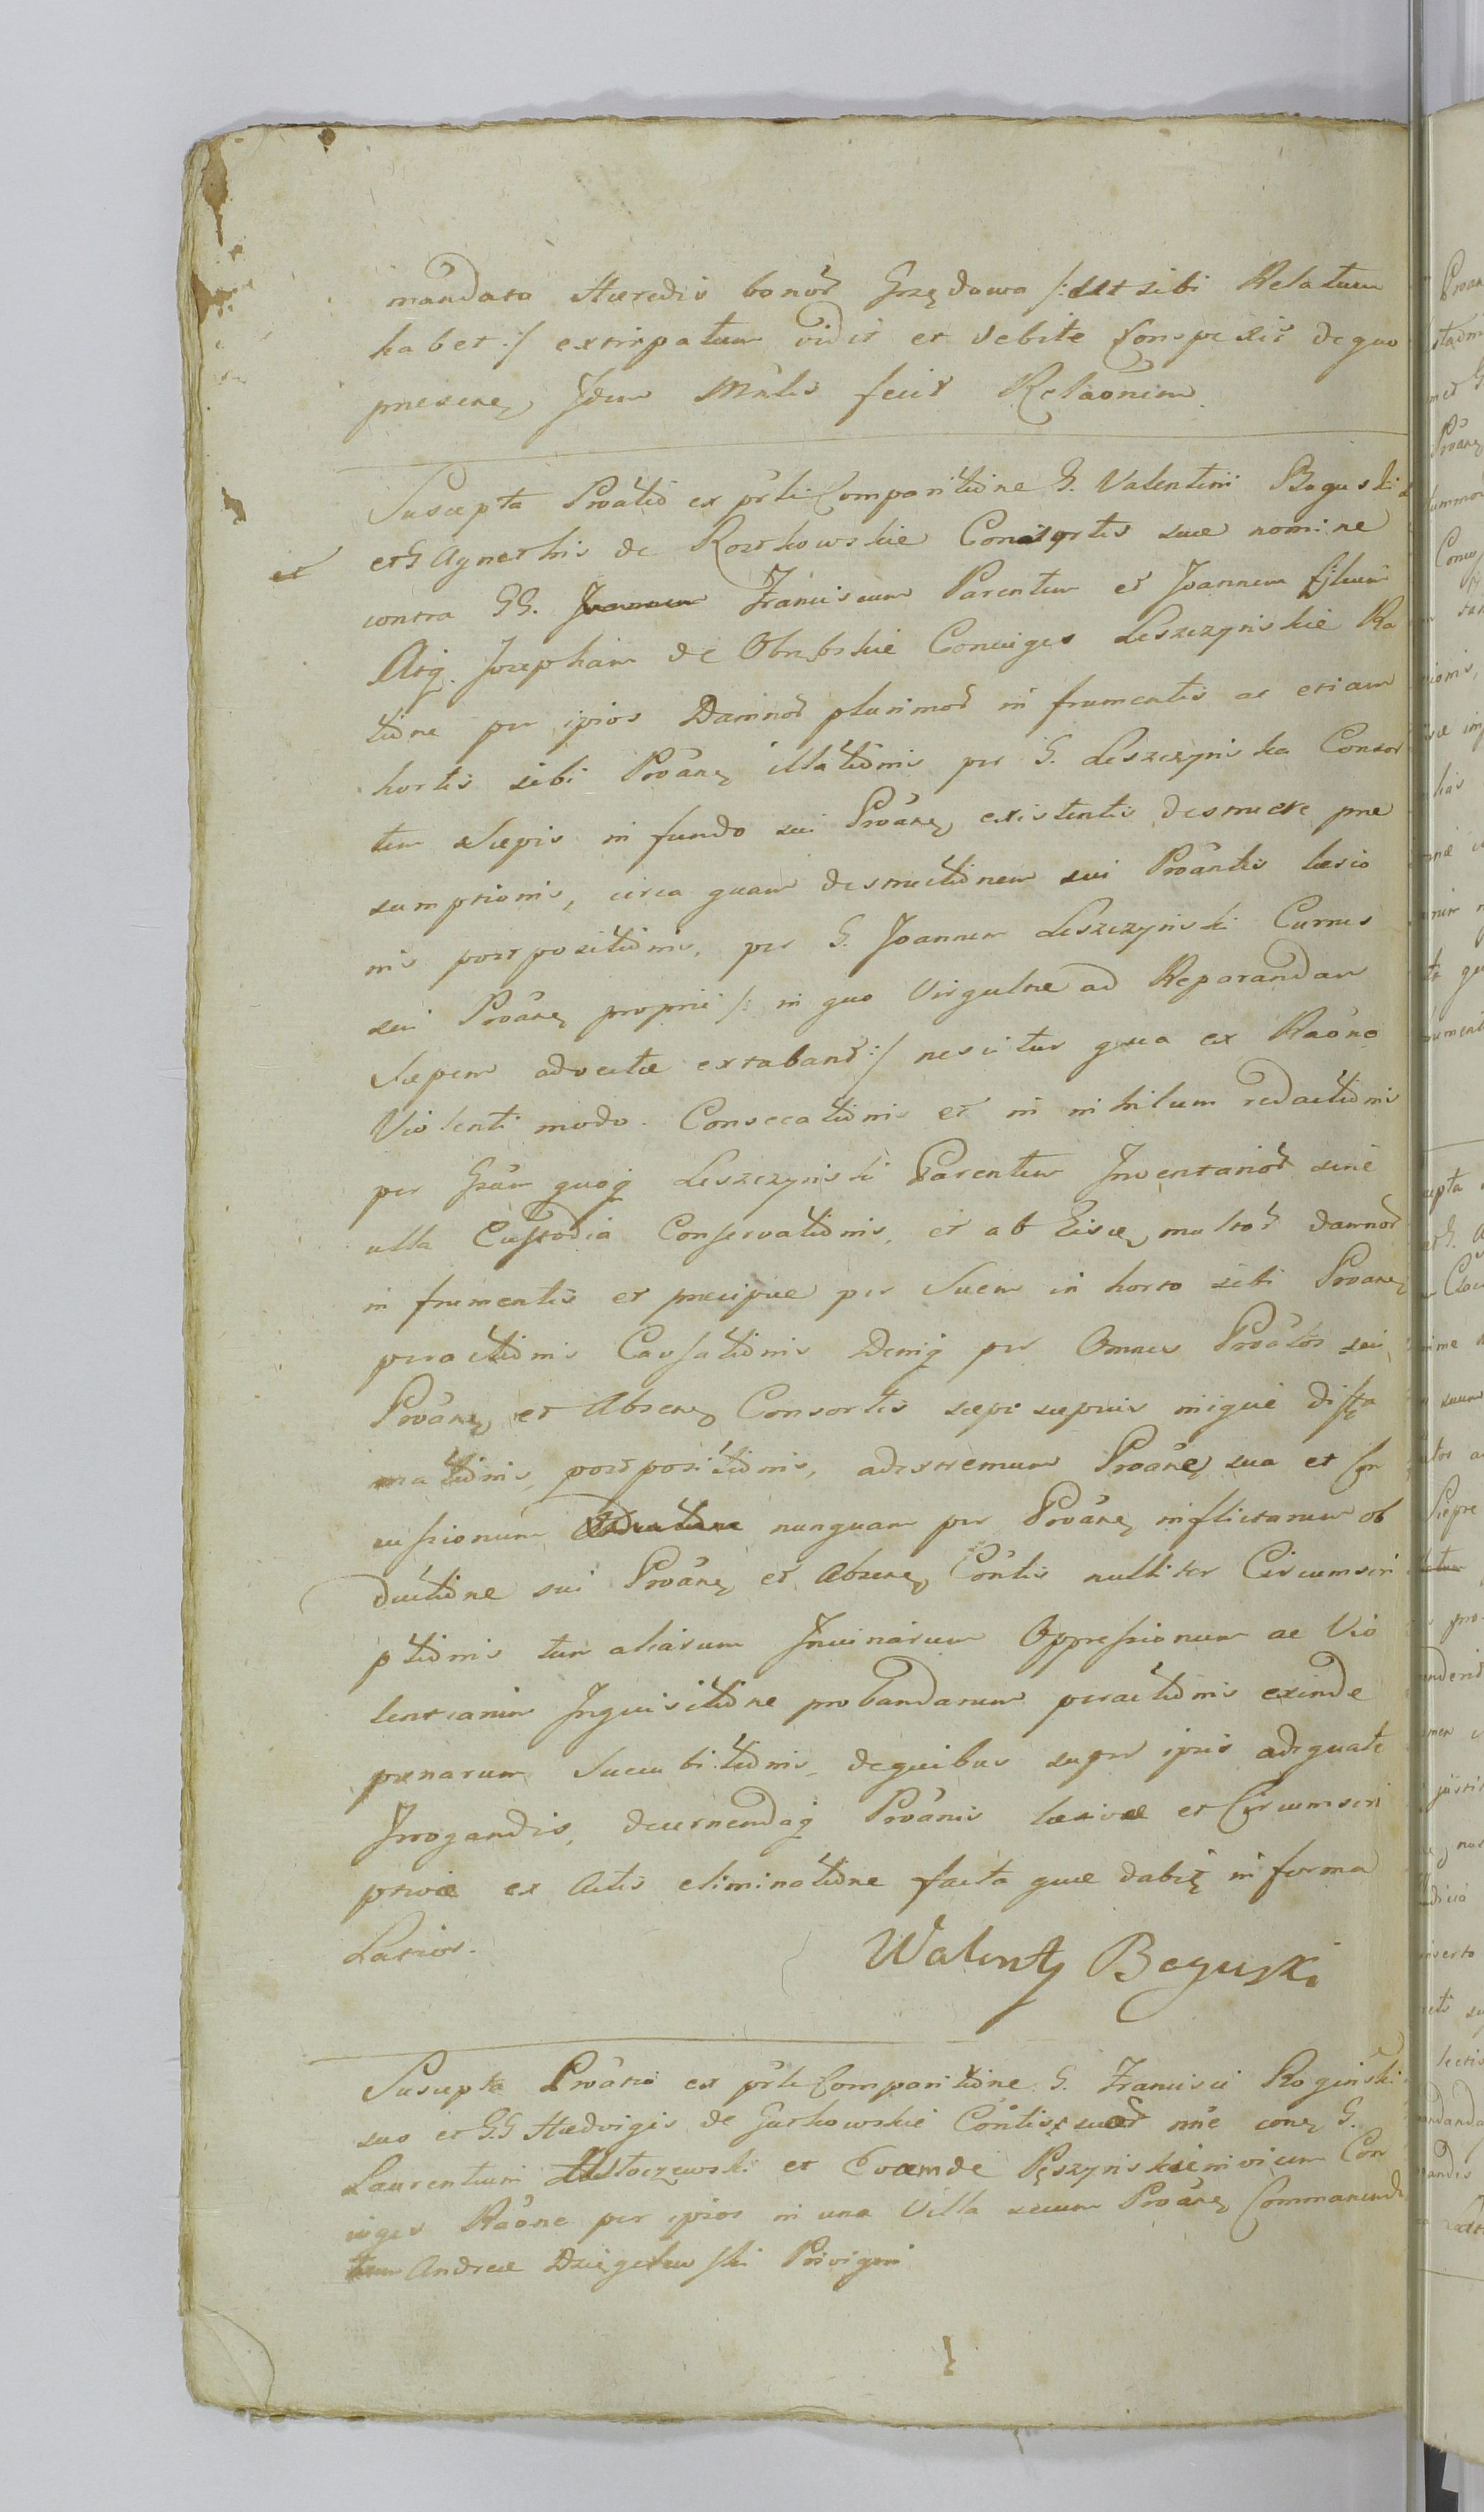 mandato Hæredis bonor̃ Grzędowo /: ut sibi Relatum
habet :/ extirpatum vidit et debite Conspexit de quo
præsenę Idem Mñlis fecit Relãonem
Suscepta Proãtio ex prĩi Comparitĩone G. Valentini Boguski
et G Agnethis de Rostkowskie Consortis suæ nomine
et
contra GG. Franciscum Parentem et Joannem filium
Atq. Josepham de Obrębskie Coniuges Leszczynskie Ra
tĩone per ipsos Damnor̃ plurimor̃ in frumentis ac etiam
hortis sibi Proãnę illatĩonis per G. Leszczynska Consor
tem Sæpis in fundo sui Proãnę existentis destruere præ
sumptionis, circa quam destructĩonem sui Proãntis læsio
nis postpositĩonis, per G. Joannem Leszczynski Currus
sui Proãnę proprii /: in quo Virgultæ ad Reparandam
Sæpem advectæ extabant :/ nescitur qua ex Raõne
Violenti modo Consecatĩonis et in nihilum redactĩonis
per Grãm quoq Leszczynski Parentem Inventarior̃ sine
ulla Custodia Conservatĩonis, et ab Eisdę multor̃ damnor̃
in frumentis et præcipue per Suem in horto sibi Proanę
peractĩonis Causatĩonis Deniq per Omnes Proãtos sui
Proãnę et Absenę Consortis sæpe sæpius inique diffa
matĩonis, postpositĩonis, ad extremum Proãnę sua et Con
cussionum nunquam per Proãnę inflictarum ob
ductĩone sui Proãnę et Absenę Cõntis nulliter Circumscri
ptĩonis tum aliarum Iniuriarum Oppressionum ac Vio
lentiarum Inquisitĩone probandarum peractĩonis exinde
pænarum Succubitĩonis, de quibus super ipsis adæquate
Irrogandis, decernendaq Proãnis læsivæ et Circumscri
ptivæ ex Actis eliminatĩone facta quæ dabię in forma
Latior.
Walenty Boguski
Suscepta Proãtio ex prĩi Comparitĩone G. Francisci Roginski
suo et G.G Hædvigis de Gurkowskie Cõntis suor̃ nñe conę G.
Laurentium et Evam de Pęszynskie invicem Con
iuges Raõne per ipsos in una Villa secum Proãnę Commanende
Andreæ Dzięgelewski Privigni